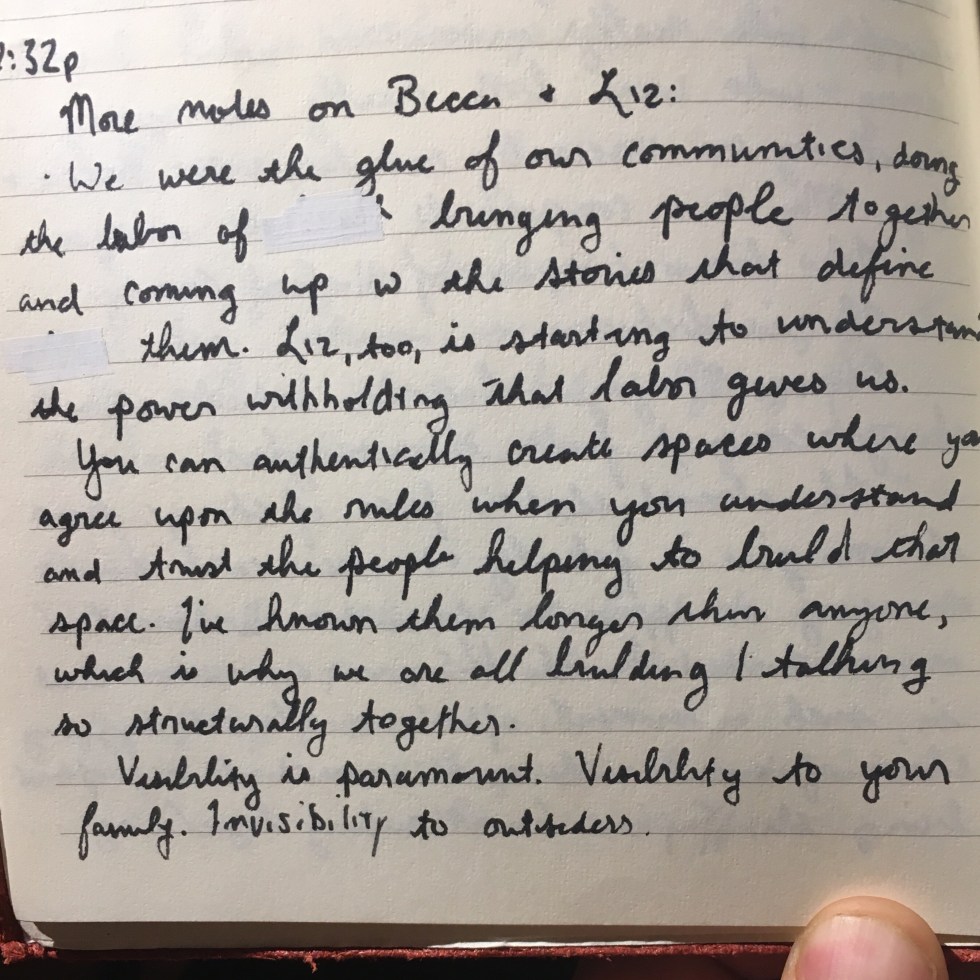 :32p
More notes on Becca + Liz:
· We were the glue of our communities, doing
the labor of bringing people together
and coming up w the stories that define
them. Liz, too, is starting to understand
the power withholding that labor gives us.
You can authentically create spaces where you
agree upon the rules when you understand
and trust the people helping to build that
space. I've known them longer than anyone,
which is why we are all building / talking
so structurally together.
Visibility is paramount. Visibility to your
family. Invisibility to outsiders.